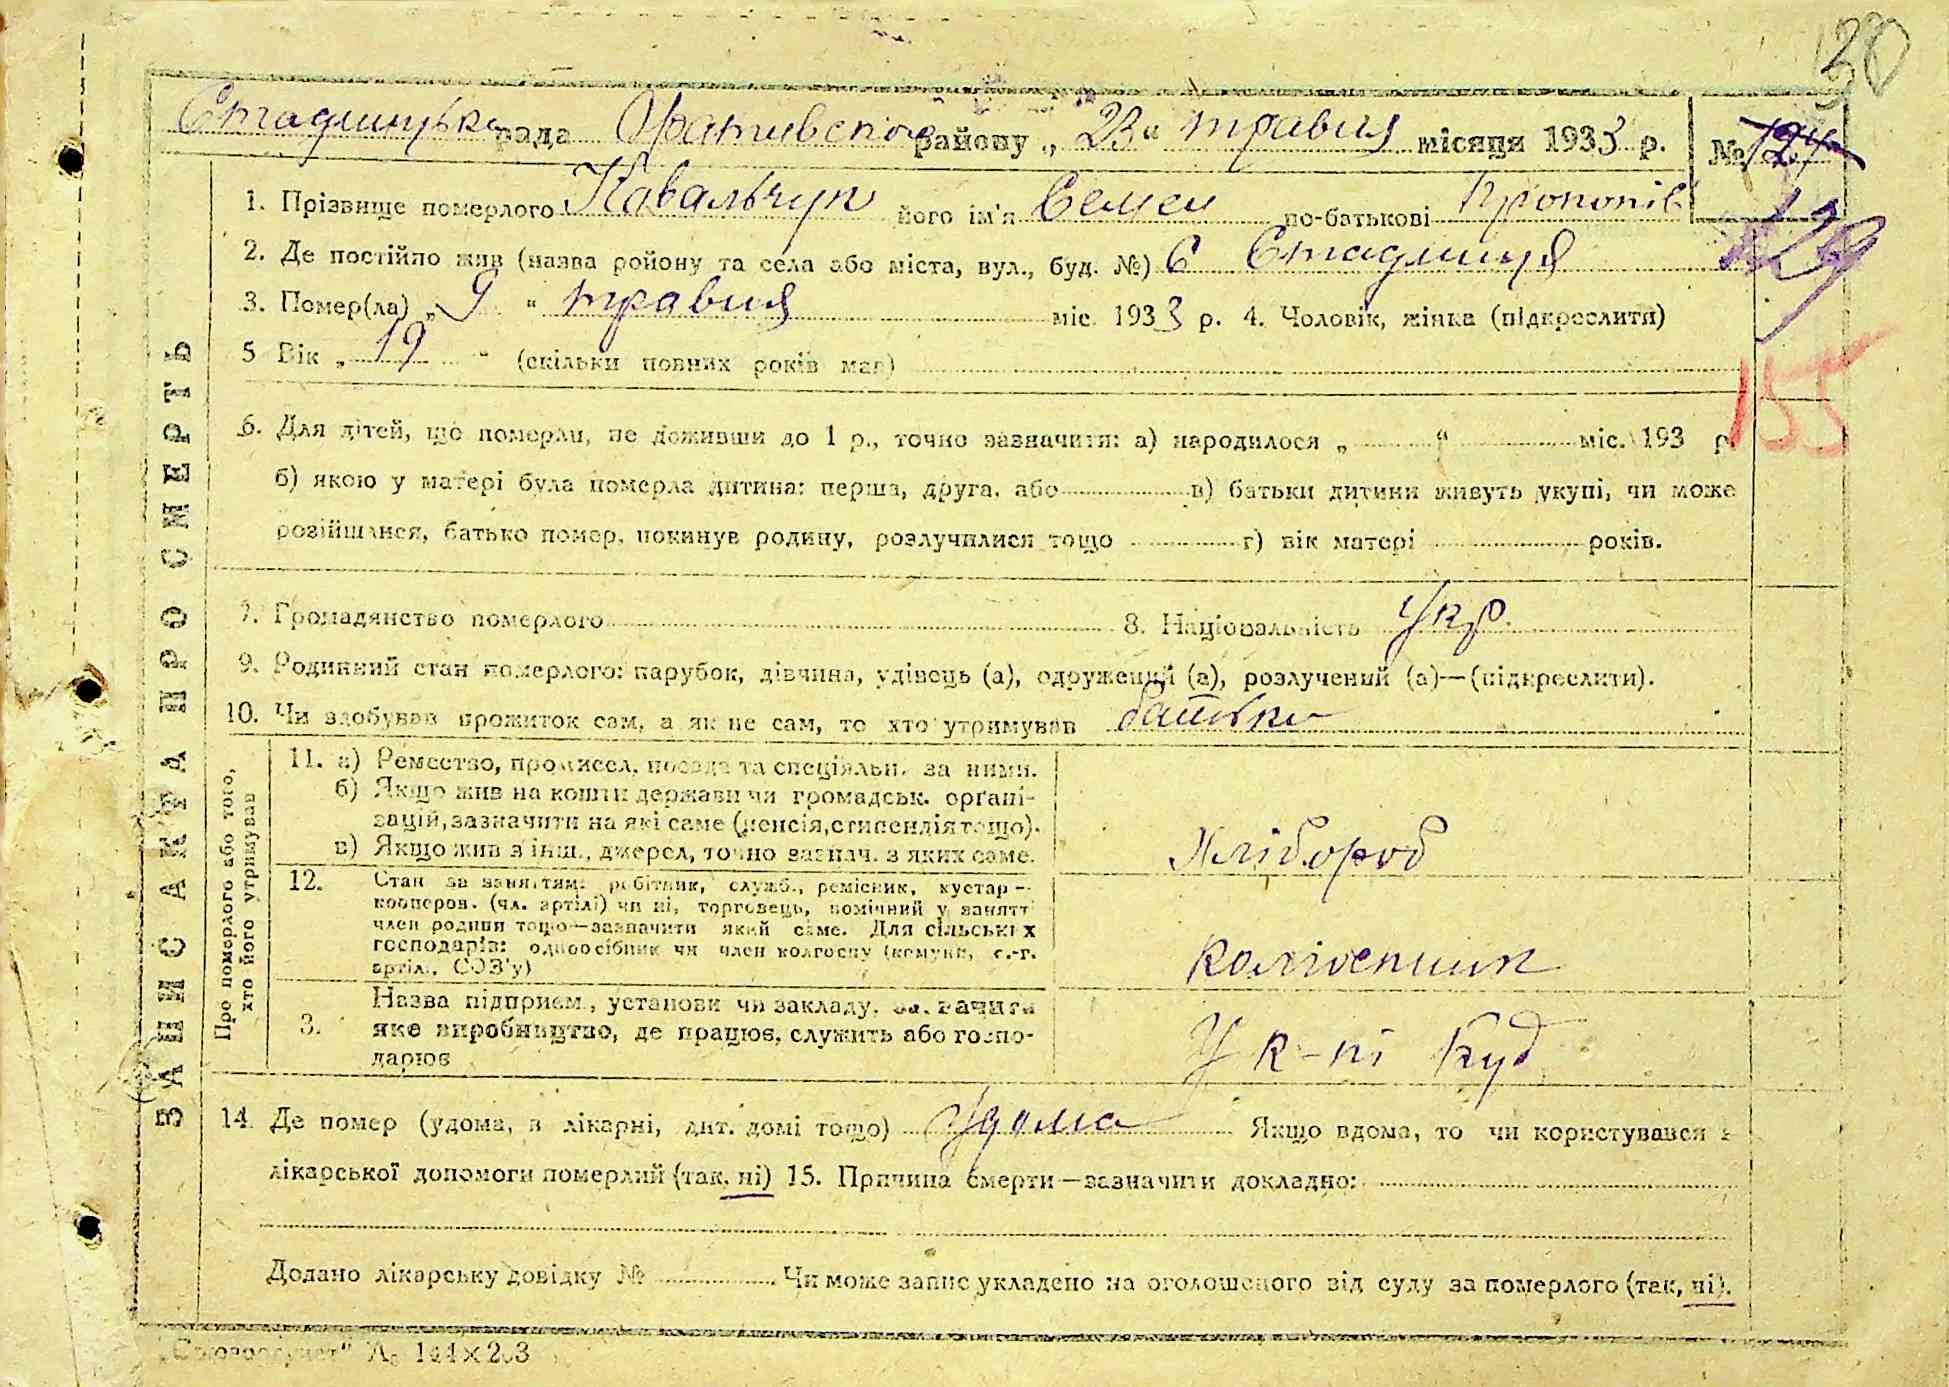 30
Стадницька рада Фативского району „ 23 “ травня місяця 1933 р. № 124
129
1. Прізвище померлого Ковальчук його ім'я Семен по-батькові Прокопів
2. Де постійно жив (назва району та села або міста, вул., буд. №) С Стадниця
3. Помер(ла) „ 9 “ травня міс. 1933 р. 4. Чоловік, жінка (підкреслити)
5 Вік „ 19 “ (скільки повних років мав)
155
6. Для дітей, що померли, не доживши до 1 р., точно зазначити: а) народилося „ “ міс. 193 р.
б) якою у матері була померла дитина: перша, друга, або в) батьки дитини живуть укупі, чи може
розійшлися, батько помер, покинув родину, розлучилися тощо г) вік матері років.
7. Громадянство померлого 8. Національність Укр.
9. Родинний стан померлого: парубок, дівчина, удівець (а), одружений (а), розлучений (а)—(підкреслити).
10. Чи здобував прожиток сам, а як не сам, то хто утримував батьки
ЗАПИС АКТА ПРО СМЕРТЬ
Про померлого або того, хто його утримував
11. а) Ремество, промисел, посада та спеціяльн. за ними.
б) Якщо жив на кошти держави чи громадськ. органі-
зацій, зазначити на які саме (пенсія, стипендія тощо).
в) Якщо жив з інш., джерел, точно зазнач. з яких саме.
Хлібороб
12. Стан за заняттям: робітник, служб., ремісник, кустар—
кооперов. (чл. артілі) чи ні, торговець, помічний у занятті
член родини тощо—зазначити який саме. Для сільських
господарів: одноосібник чи член колгоспу (комуни, с.-г.
артілі, СОЗ'у)
колгоспник
3. Назва підприєм., установи чи закладу, зазначити
яке виробництво, де працює, служить або госпо-
дарює
У к-пі Куд
14. Де помер (удома, в лікарні, дит. домі тощо) Удома Якщо вдома, то чи користувався з
лікарської допомоги померлий (так, ні) 15. Причина смерти—зазначити докладно:
Додано лікарську довідку № Чи може запис укладено на оголошеного від суду за померлого (так, ні).